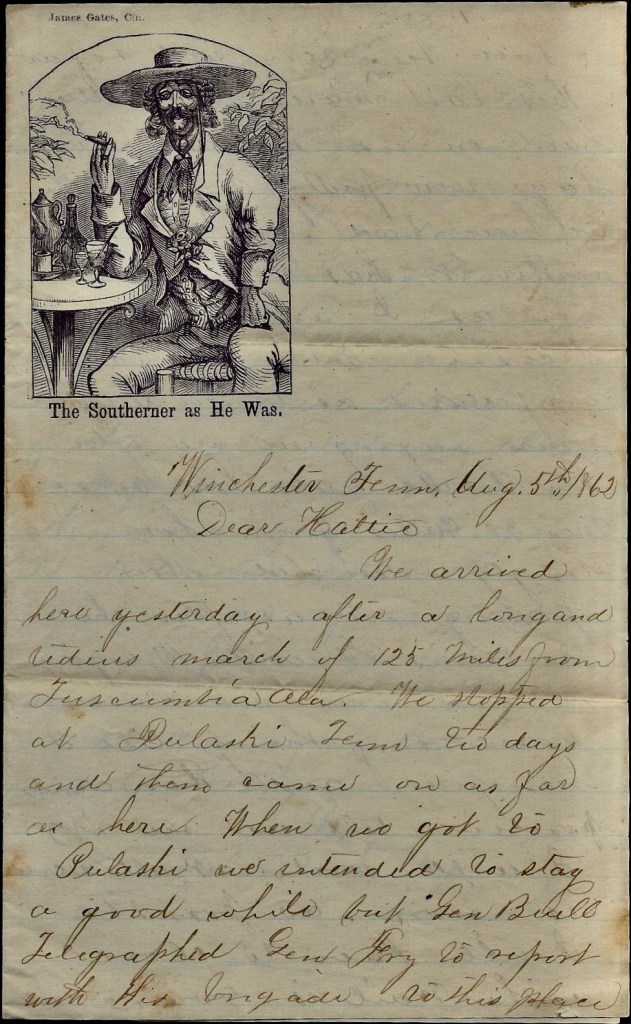 James Gates, Cin.
The Southerner as He Was.
Winchester Tenn, Aug. 5th/1862
Dear Hattie
We arrived
here yesterday after a long and
tedius march of 125 miles from
Tuscumbia Ala. We stopped
at Pulaski Tenn two days
and then came on as far
as here When we got to
Pulaski we intended to stay
a good while but Gen Buell
Telegraphed Gen Fry to report
with His brigade to this place